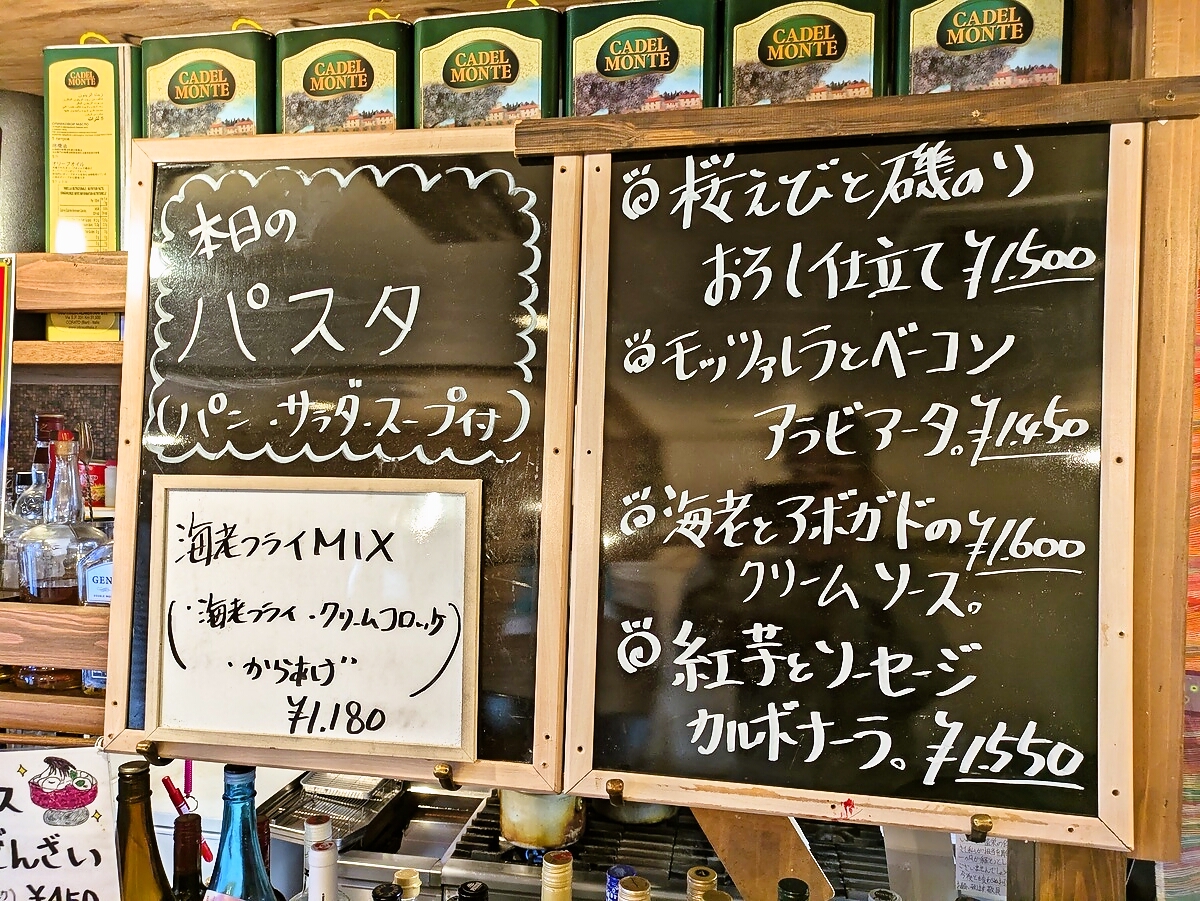 CADEL MONTE
CADEL MONTE
CADEL MONTE
CADEL MONTE
CADEL MONTE
CADEL MONTE
CADEL MONTE
本日の
パスタ
(パン・サラダ・スープ付)
海老フライMIX
(・海老フライ・クリームコロッケ
・からあげ)
¥1.180
桜えびと磯のり
おろし仕立て ¥1.500
モッツァレラとベーコン
アラビアータ。¥1.450
海老とアボガドの ¥1.600
クリームソース。
紅芋とソーセージ
カルボナーラ。 ¥1.550
GEN
ス
ぜんざい
¥450